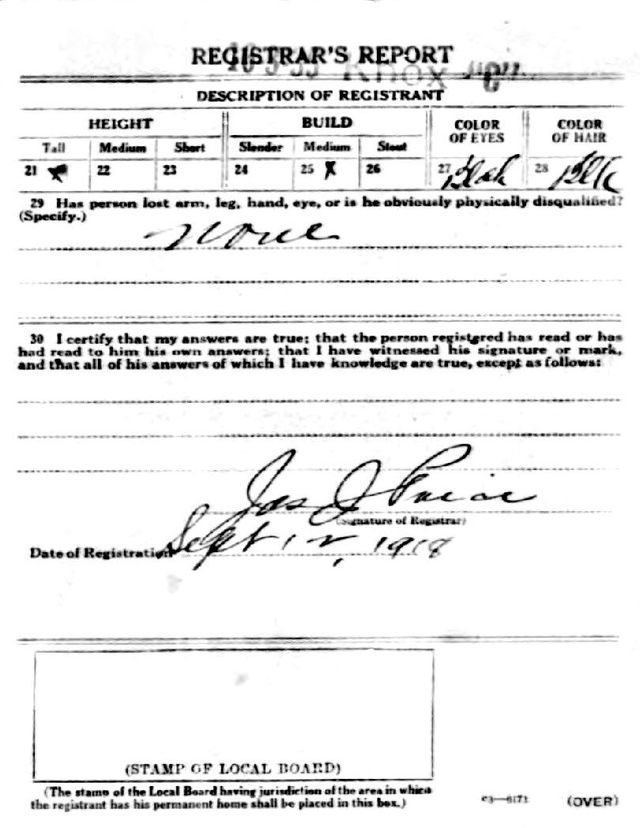 REGISTRAR'S REPORT
Knox
DESCRIPTION OF REGISTRANT
HEIGHT BUILD COLOR OF EYES COLOR OF HAIR
Tall Medium Short Slender Medium Stout
21 X 22 23 24 25 X 26 27 Black 28 Blk
29 Has person lost arm, leg, hand, eye, or is he obviously physically disqualified?
(Specify.) None
30 I certify that my answers are true; that the person registered has read or has
had read to him his own answers; that I have witnessed his signature or mark,
and that all of his answers of which I have knowledge are true, except as follows:
Jas J
(Signature of Registrar)
Date of Registration Sept 12, 1918
(STAMP OF LOCAL BOARD)
(The stamp of the Local Board having jurisdiction of the area in which
the registrant has his permanent home shall be placed in this box.)
03—6171 (OVER)